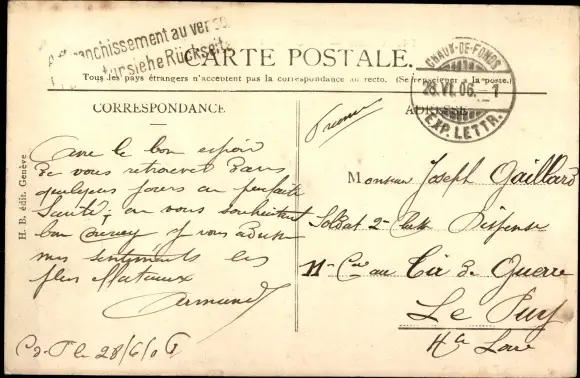 Affranchissement au verso
für siehe Rückseite
CARTE POSTALE.
Tous les pays étrangers n'acceptent pas la correspondance au recto. (Se renseigner à la poste.)
CHAUX-DE-FONDS
28.VI.06.-1
EXP. LETTR.
CORRESPONDANCE
ADRESSE
H. B. édit. Genève
Avec le bon espoir
de vous retrouver dans
quelques jours en parfaite
Santé, en vous souhaitant
bon je vous adresse
mes sentiments les
plus flatteux
Armand
C-d-F le 28/6/06
France
Monsieur Joseph Gaillard
Soldat 2me Classe Dispensé
11e Cie au Tir de Guerre
Le Puy
Hte Loire